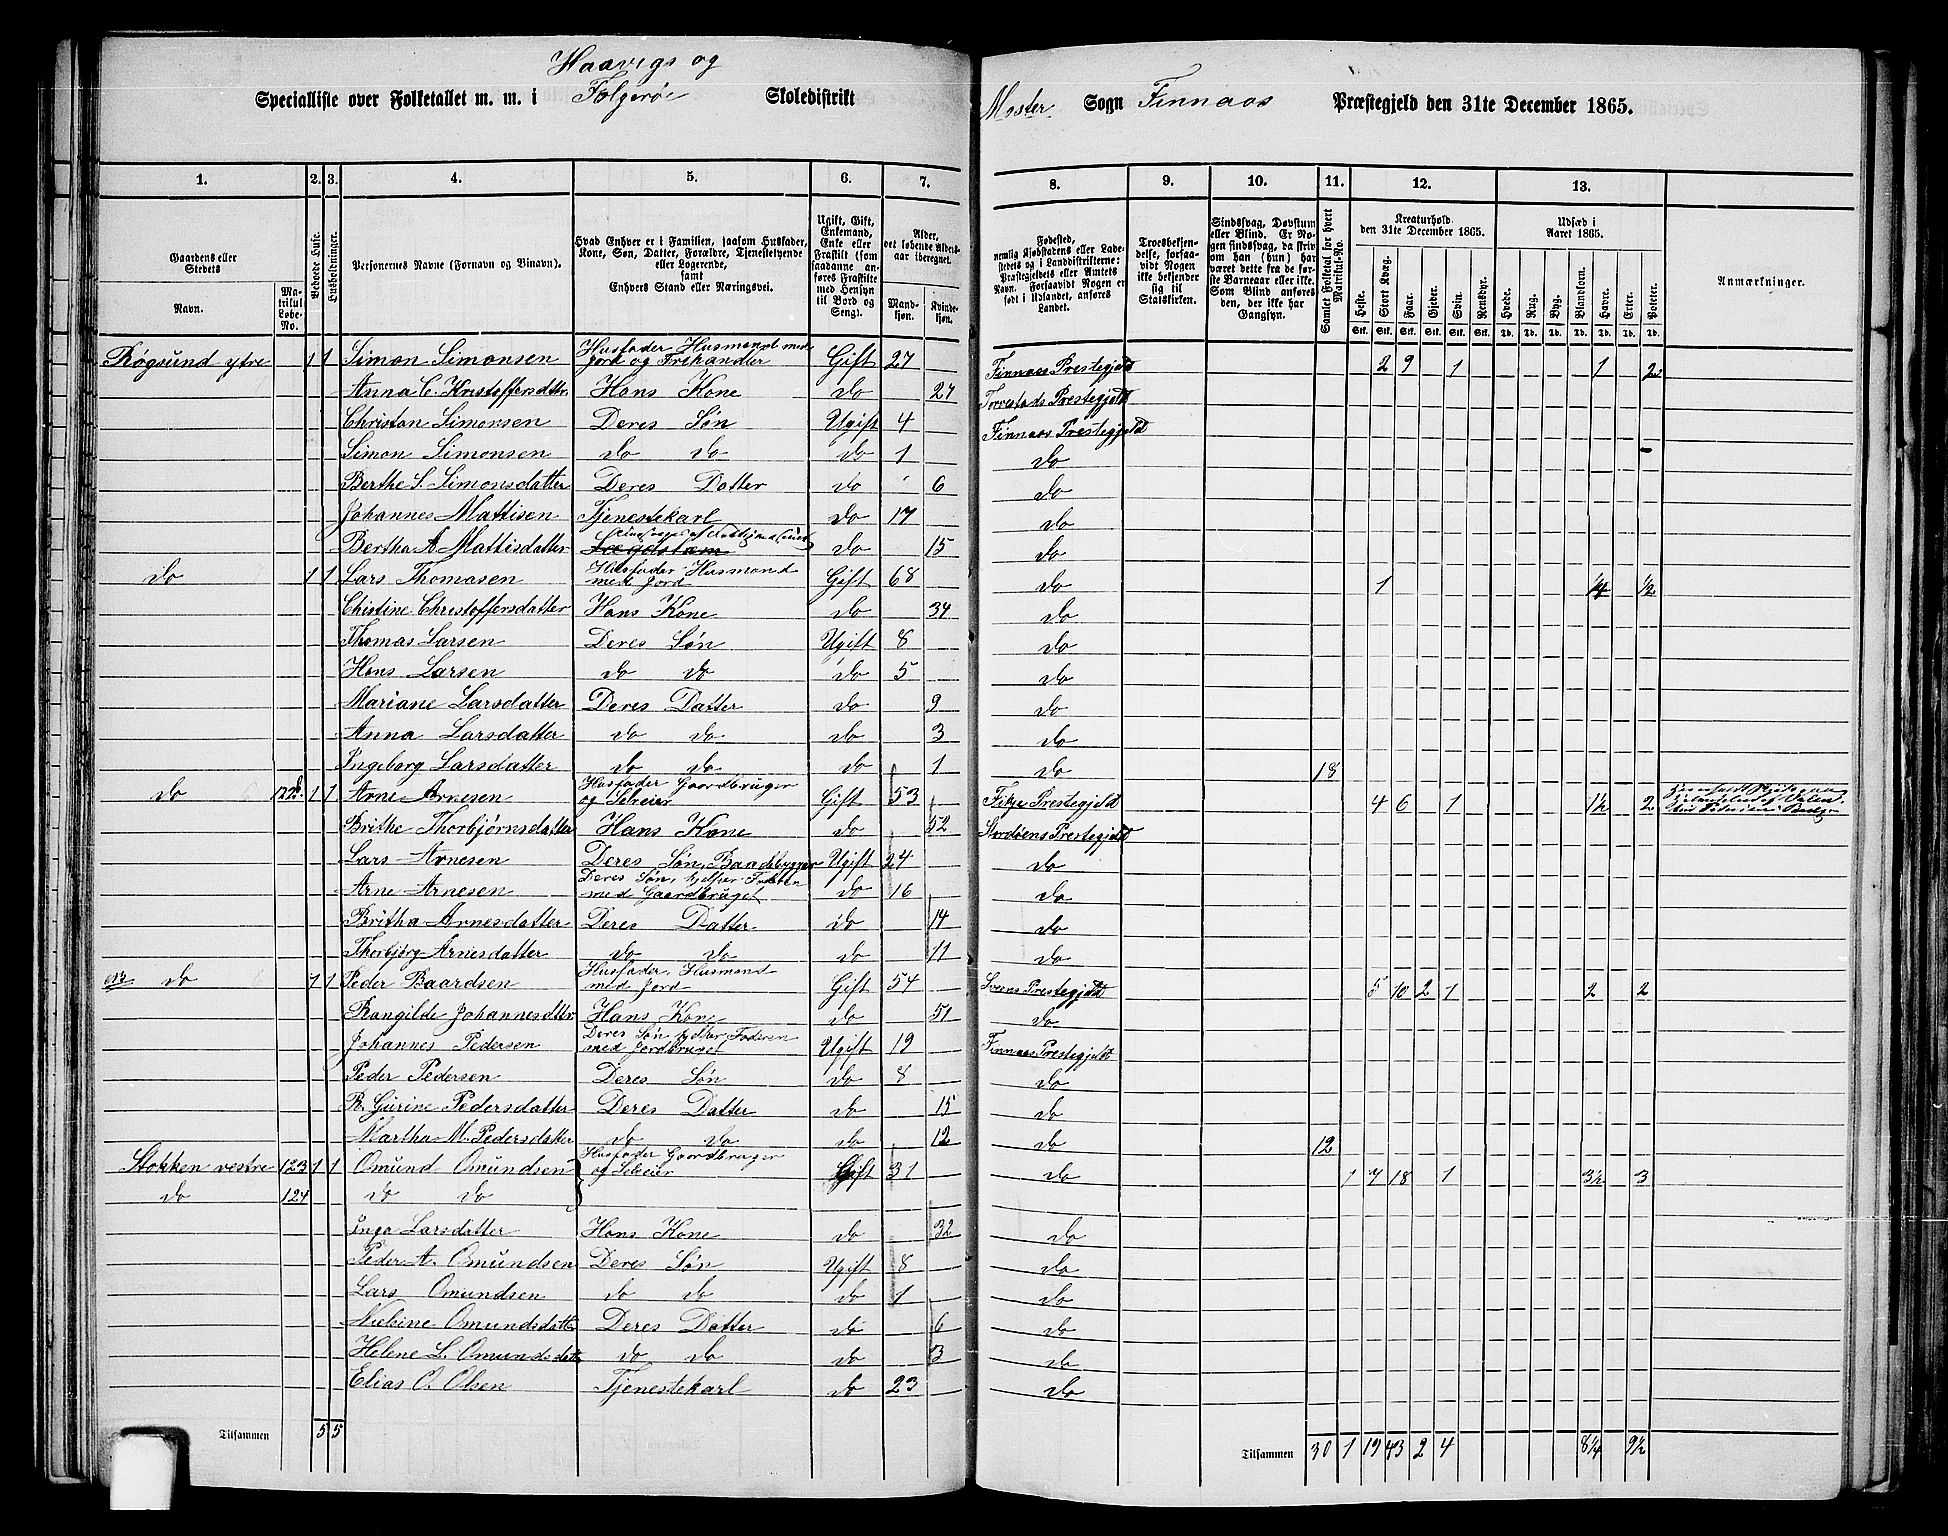 Haavigs og
Specialliste over Folketallet m. m. i Folgerøe Skoledistrikt
Moster Sogn Finnaas Præstegjeld den 31te December 1865.
1. 2. 3. 4. 5. 6. 7.
8. 9. 10. 11. 12. 13.
Gaardens eller Stedets
Navn.
Matrikul Løbe-No.
Bebøede Huse.
Husholdninger.
Personernes Navne (Fornavn og Binavn).
Hvad Enhver er i Familien, saasom Husfader, Kone, Søn, Datter, Forældre, Tjenestetyende eller Logerende, samt Enhvers Stand eller Næringsvei.
Ugift, Gift, Enkemand, Enke eller Fraskilt (som saadanne anføres Fraskilte med Hensyn til Bord og Seng).
Alder, det løbende Aldersaar iberegnet.
Mandkjøn. Kvindekjøn.
Fødested, nemlig Kjøbstadens eller Ladestedets og i Landdistrikterne: Præstegjeldets eller Amtets Navn. Forsaavidt Nogen er født i Udlandet, anføres Landet.
Troesbekjendelse, forsaavidt Nogen ikke bekjender sig til Statskirken.
Sindssvag, Døvstum eller Blind. Er Nogen sindssvag, da skriv om han (hun) har været dette fra de første Barneaar eller ikke. Som Blind anføres den, der ikke har Gangsyn.
Samlet Folketal for hvert Matrikul-No.
Kreaturhold den 31te December 1865.
Heste. Stort Kvæg. Faar. Gjeder. Svin. Rensdyr.
Stk. Stk. Stk. Stk. Stk. Stk.
Udsæd i Aaret 1865.
Hvede. Rug. Byg. Blandkorn. Havre. Erter. Poteter.
Td. Td. Td. Td. Td. Td. Td.
Anmærkninger.
Røgsund ytre 1 1 Simon Simonsen Husfader Husmand med Jord og Frihandler Gift 27 Finnaas Prestegjeld 2 9 1 1 2
Anna C. Kristoffersdattr Hans Kone do 27 Torvestads Prestegjeld
Christan Simonsen Deres Søn Ugift 4 Finnaas Prestegjeld
Simon Simonsen do do do 1 do
Berthe S. Simonsdatter Deres Datter do 6 do
Johannes Mattisen Tjenestekarl do 17 do
Bertha A Mattisdatter Lægdslem do 15 do
do 1 1 Lars Thomasen Husfader Husmand med Jord Gift 68 do 1 1/4 1/2
Christine Christoffersdatter Hans Kone do 34 do
Thomas Larsen Deres Søn Ugift 8 do
Hans Larsen do do do 5 do
Mariane Larsdatter Deres Datter do 9 do
Anna Larsdatter do do do 3 do
Ingeborg Larsdatter do do do 1 do 18
do 122 1 1 Arne Arnesen Husfader Gaardbruger og Seleier Gift 53 Fitje Prestegjeld 4 6 1 1½ 2
Brithe Thorbjørnsdatter Hans Kone do 52 Stordøens Prestegjeld
Lars Arnesen Deres Søn, Baadebygger Ugift 24 do
Arne Arnesen Deres Søn, hjelper Faderen med Gaardbruget do 16 do
Britha Arnesdatter Deres Datter do 14 do
Thorbjørg Arnesdatter do do do 11 do
do 1 1 Peder Baardsen Husfader, Husmand med Jord Gift 54 Sveens Prestegjeld 5 10 2 1 2 2
Rangilde Johannesdtr Hans Kone do 51 do
Johannes Pedersen Deres Søn hjelper Faderen med Jordbruget Ugift 19 Finnaas Prestegjeld
Peder Pedersen Deres Søn do 8 do
R. Gurine Pedersdatter Deres Datter do 15 do
Martha M. Pedersdatter do do do 12 do 12
Stokken vestre 123 1 1 Omund Omundsen Husfader Gaardbruger og Seleier Gift 31 do 1 7 18 1 3½ 3
do 124 do do
Inga Larsdatter Hans Kone do 32 do
Peder A. Omundsen Deres Søn Ugift 8 do
Lars Omundsen do do do 1 do
Nielsine Omundsdatt Deres Datter do 6 do
Helene L. Omundsdatt do do do 3 do
Elias O. Olsen Tjenestekarl do 23 do
Tilsammen 5 5
Tilsammen 30 1 19 43 2 4 8¼ 9½